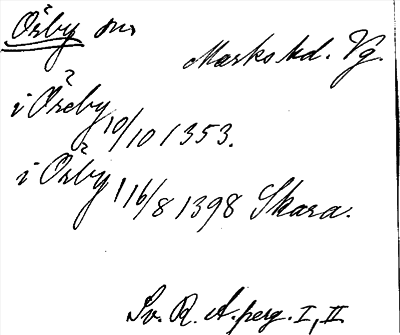 Örby sn
Marks hd. Vg.
i Öreby 10/10 1353.
i Örby 16/8 1398 Skara.
Sv. R. A. perg. I, II